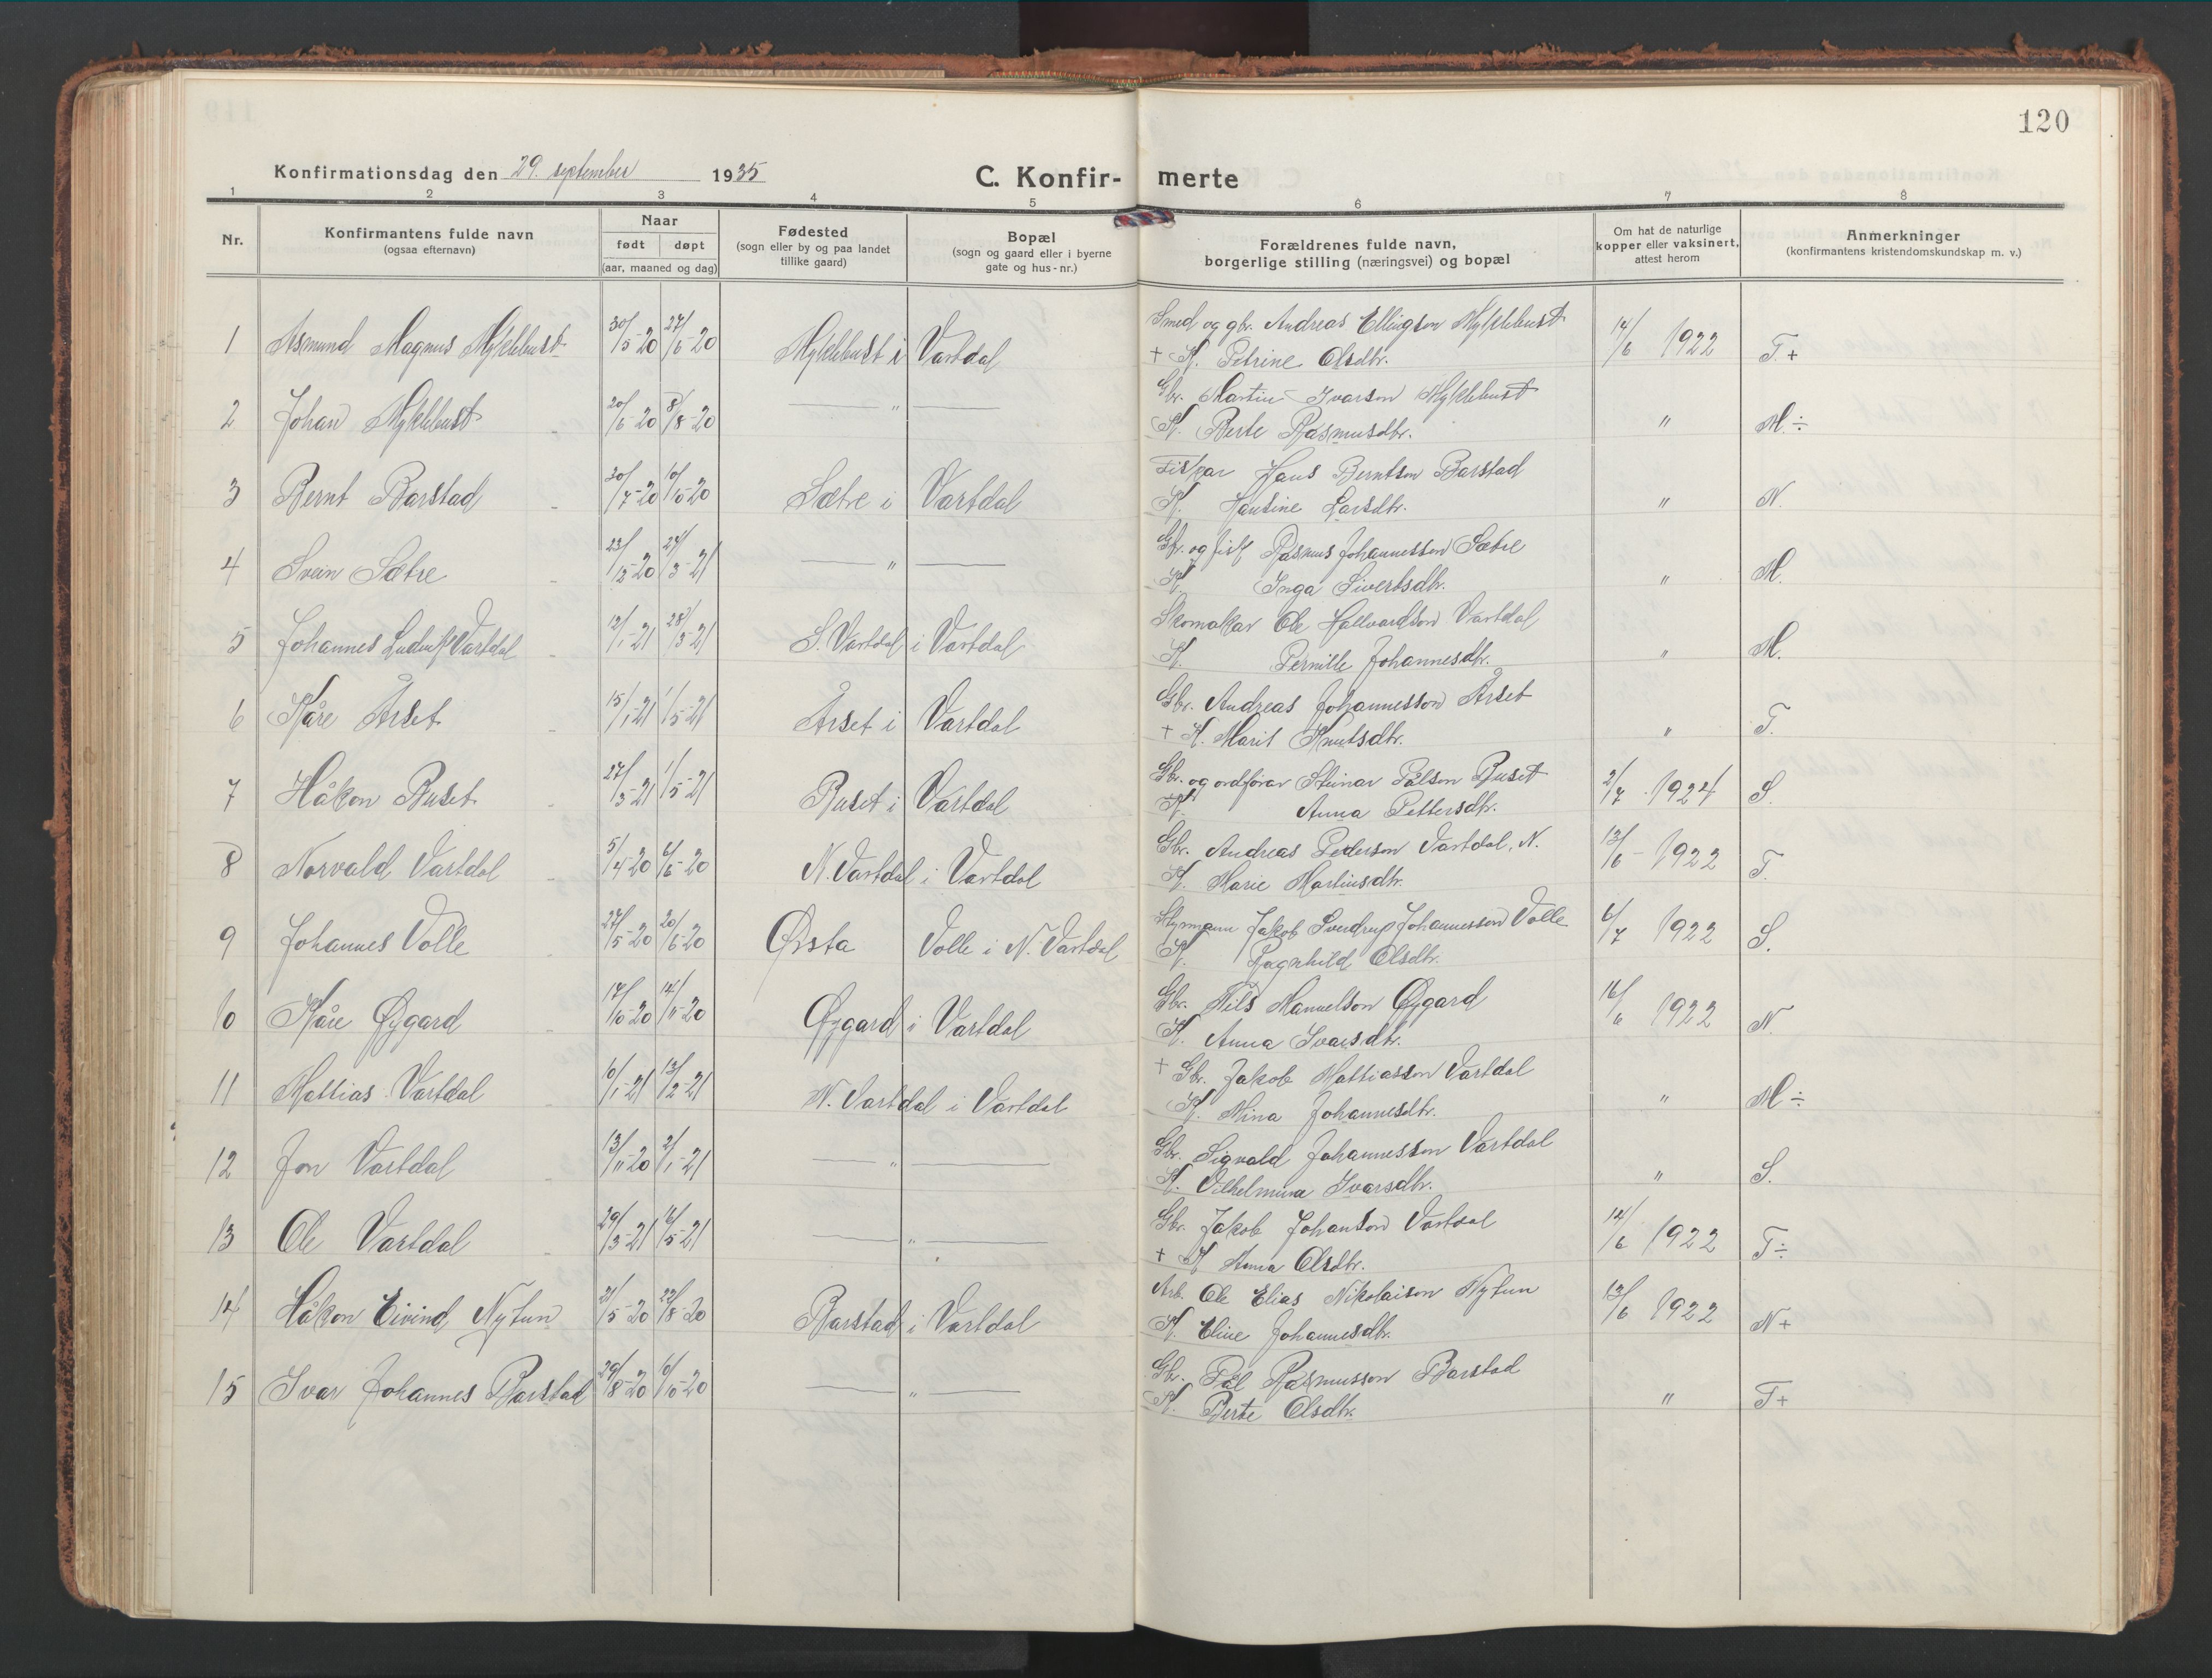 120
Konfirmationsdag den 29. september 1935
C. Konfir- merte
1 2 3 4 5 6 7 8
Nr.
Konfirmantens fulde navn
(ogsaa efternavn)
Naar
født døpt
(aar, maaned og dag)
Fødested
(sogn eller by og paa landet
tillike gaard)
Bopæl
(sogn og gaard eller i byerne
gate og hus-nr.)
Forældrenes fulde navn,
borgerlige stilling (næringsvei) og bopæl
Om hat de naturlige
kopper eller vaksinert,
attest herom
Anmerkninger
(konfirmantens kristendomskundskap m. v.)
1 Asmund Magnus Myklebust 30/5-20 27/6-20 Myklebust i Vartdal Smed og gbr. Andreas Ellingson Myklebust 14/6 1922 T.+
+ K. Petrine Olsdtr.
2 Johan Myklebust 20/6-20 8/8-20 — " — Gbr. Martin Ivarson Myklebust " M.÷
K. Berte Rasmusdtr.
3 Bernt Barstad 30/7-20 10/10-20 Sætre i Vartdal Fiskar Hans Berntson Barstad " N.
K. Hansine Larsdtr.
4 Svein Sætre 23/12-20 24/3-21 — " — Gbr. og fisk. Rasmus Johannesson Sætre " M.
K. Inga Sivertsdtr.
5 Johannes Ludulf Vartdal 12/1-21 28/3-21 S. Vartdal i Vartdal Skomakar Ole Hallvardson Vartdal " M.
K. Pernille Johannesdtr.
6 Kåre Årset 15/1-21 1/5-21 Årset i Vartdal Gbr. Andreas Johannesson Årset " T.
+ K. Marit Knutsdtr.
7 Håkon Buset 27/3-21 1/5-21 Buset i Vartdal Gbr. og ordførar Steinar Pålson Buset 2/7 1924 S.
K. Anna Pettersdtr.
8 Norvald Vartdal 5/4-20 6/6-20 N. Vartdal i Vartdal Gbr. Andreas Pederson Vartdal, N. 13/6 - 1922 T.
K. Marie Martinsdtr.
9 Johannes Volle 27/5-20 20/6-20 Ørsta Volle i N. Vartdal Styrmann Jakob Sverdrup Johannesson Volle 6/7 1922 S.
K. Ragnhild Olsdtr.
10 Kåre Øygard 17/10-20 14/11-20 Øygard i Vartdal Gbr. Nils Manuelson Øygard 16/6 1922 N.
K. Anna Ivarsdtr.
11 Mattias Vartdal 10/1-21 13/2-21 N. Vartdal i Vartdal + Gbr. Jakob Mattiasson Vartdal " M÷
K. Mina Johannesdtr.
12 Jon Vartdal 13/11-20 2/1-21 — " — Gbr. Sigvald Johannesson Vartdal " S.
K. Vilhelmina Ivarsdtr.
13 Ole Vartdal 29/3-21 16/5-21 — " — Gbr. Jakob Johanson Vartdal 14/6 1922 T÷
+ K Anna Olsdtr.
14 Håkon Eivind Nytun 21/5-20 22/8-20 Barstad i Vartdal Arb. Ole Elias Nikolaison Nytun 13/6 1922 N+
K. Eline Johannesdtr.
15 Ivar Johannes Barstad 29/8-20 10/10-20 — " — Gbr. Pål Rasmusson Barstad " T+
K. Berte Olsdtr.